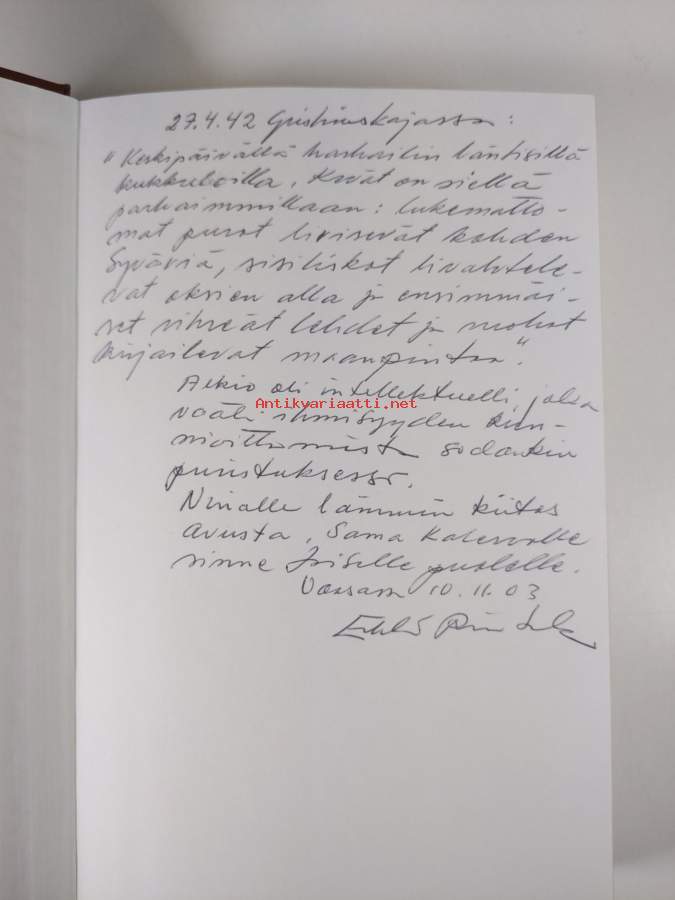 27.4.42 Grishinskajassa:
"Keskipäivällä harhailin läntisillä
kukkuloilla. Kevät on siellä
parhaimmillaan: lukematto-
mat purot livisevät kohden
Syväriä, sisiliskot livahtele-
vat oksien alla ja ensimmäi-
set vihreät lehdet ja ruohot
kirjailevat maanpintaa".
Alkio oli intellektuelli, joka
vaali ihmisyyden kun-
nioittamista sodankin
puristuksessa.
Antikvariaatti.net
Ninalle lämmin kiitos
avusta. Sama Kalervolle
sinne toiselle puolelle.
Vaasassa 10.11.03